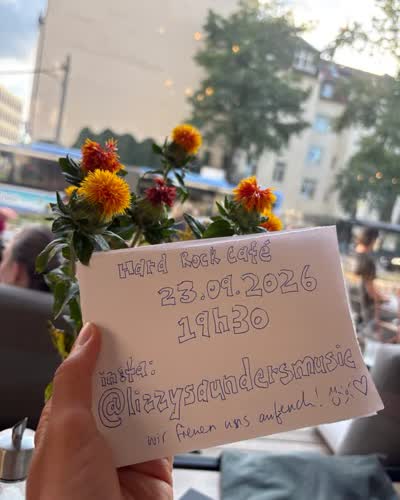 Hard Rock Café
23.09.2026
19h30
insta:
@lizzysaundersmusic
wir freuen uns aufeuch!